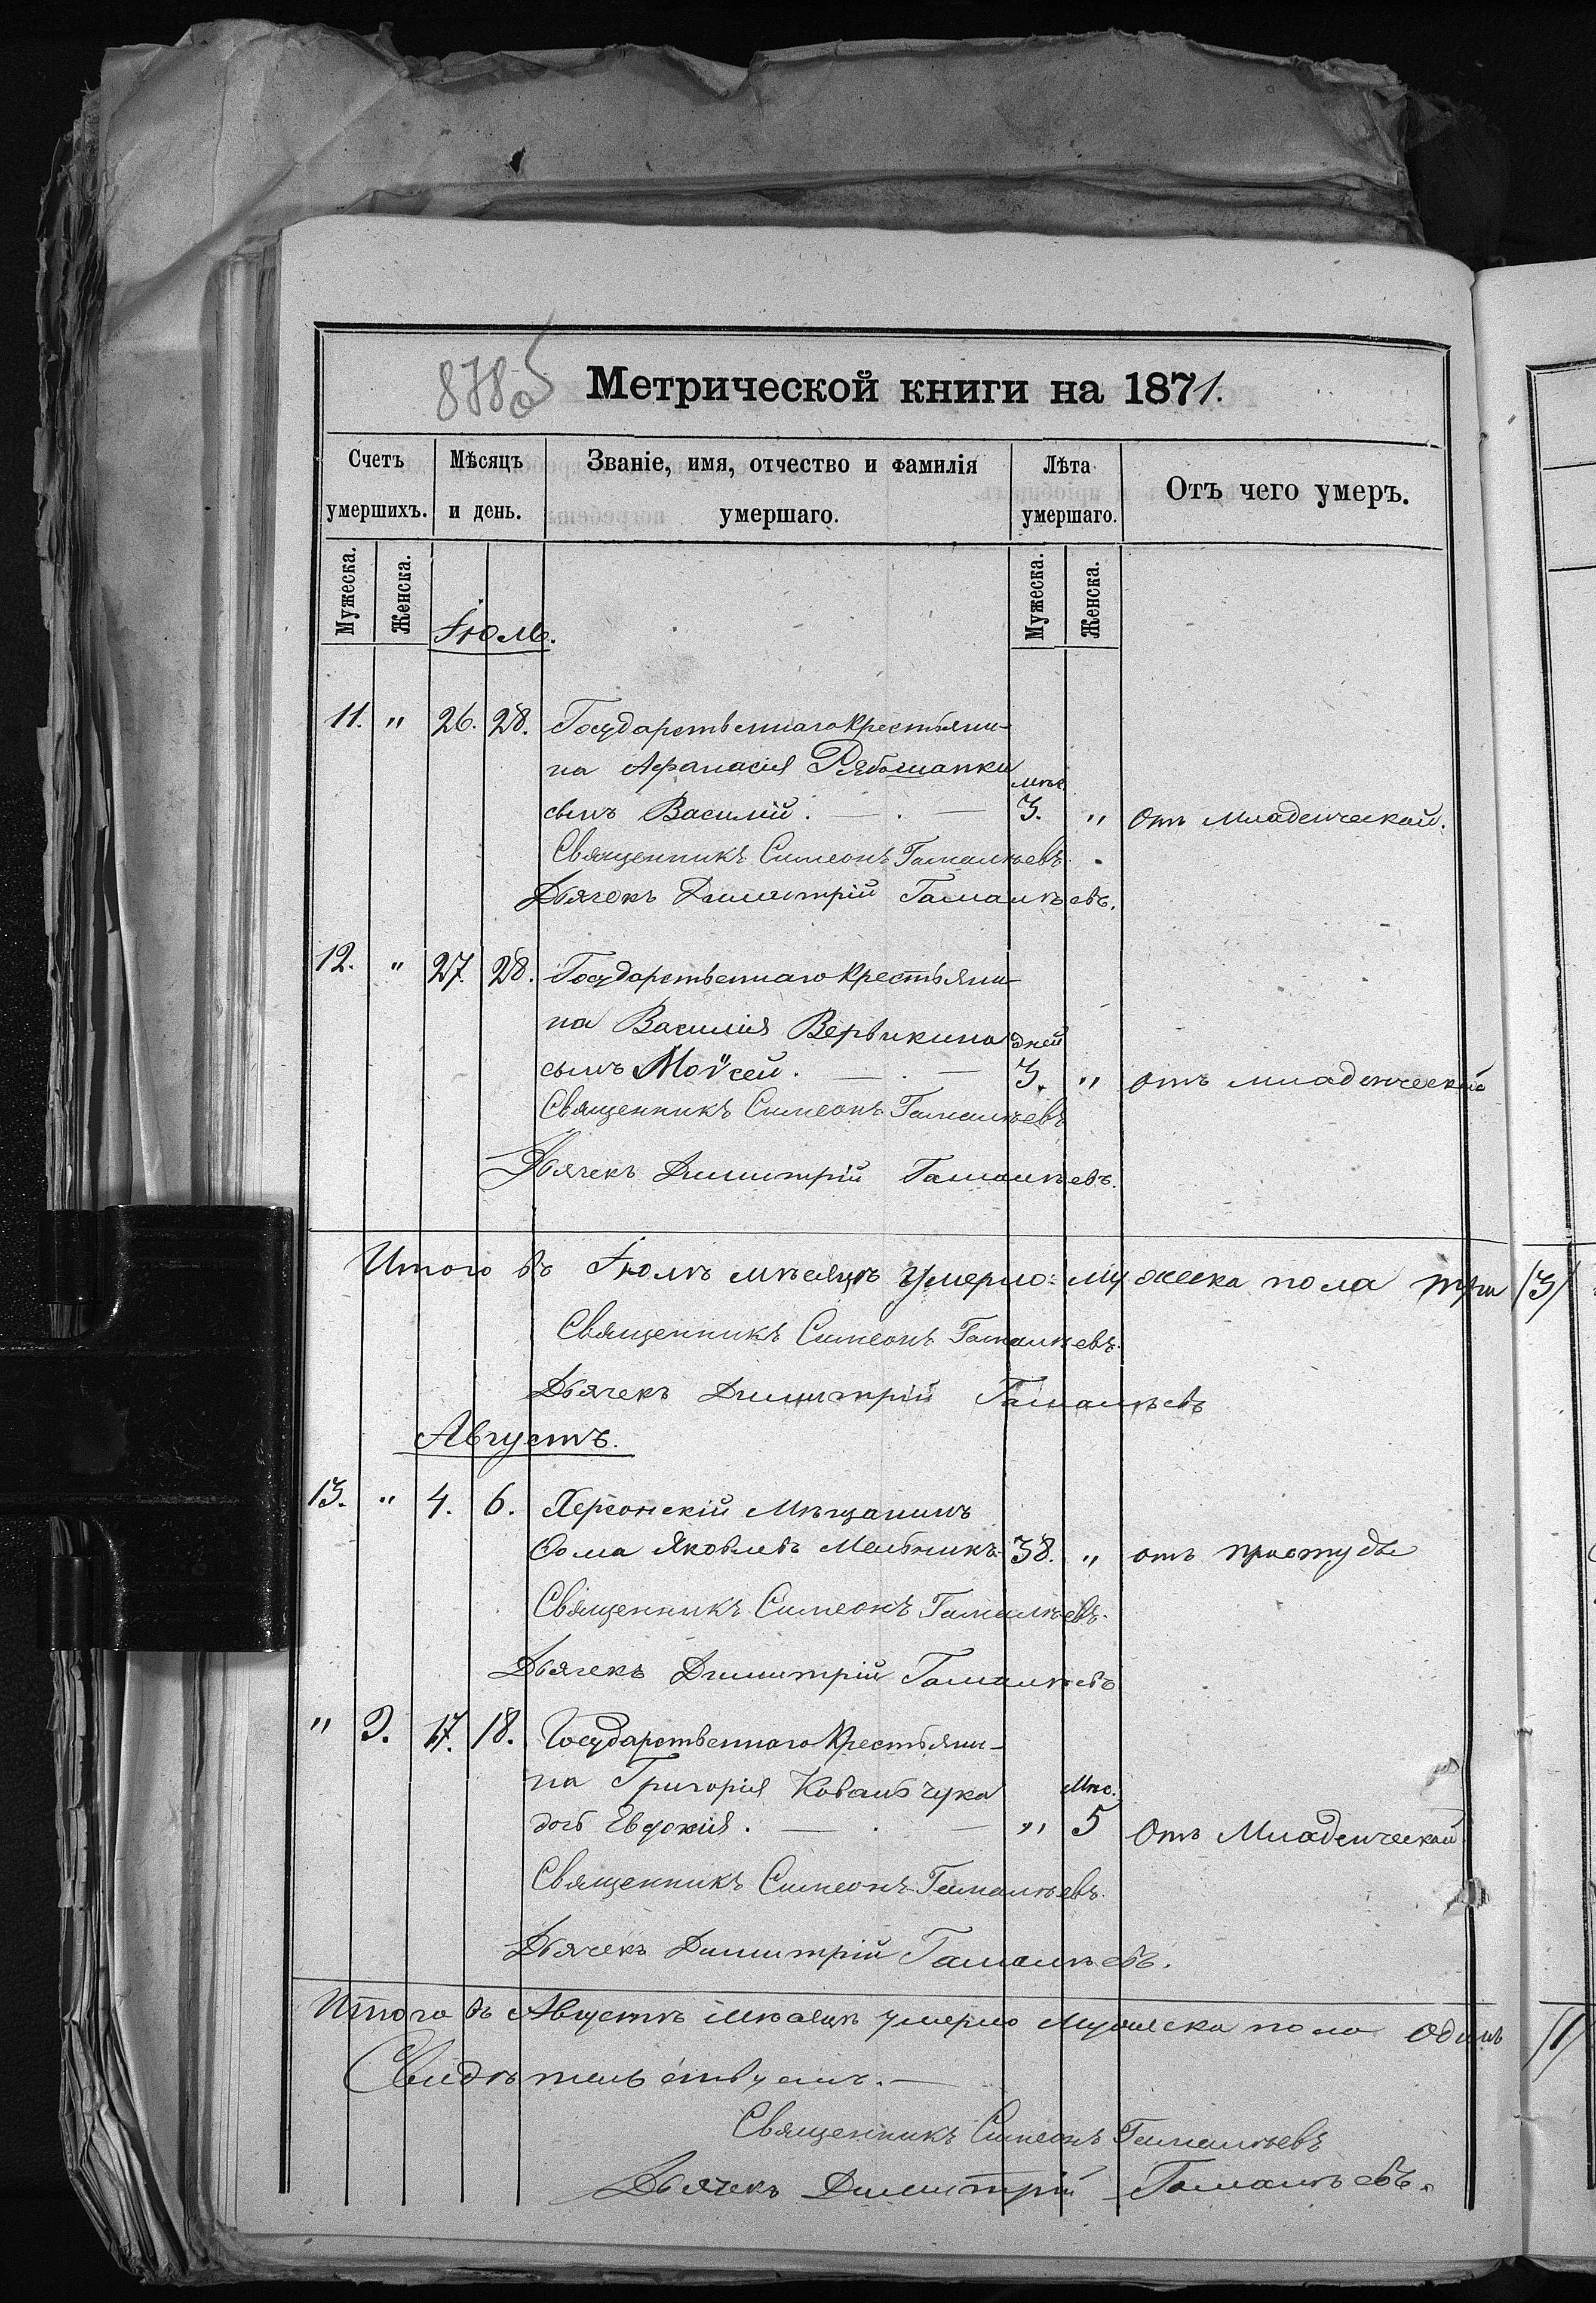 878об
Метрической книги на 1871.
Счетъ умершихъ.
Мѣсяцъ и день.
Званіе, имя, отчество и фамилія умершаго.
Лѣта умершаго.
Отъ чего умеръ.
Мужеска.
Женска.
Мужеска.
Женска.
Іюль.
11. " 26. 28. Государственнаго Крестьяни-
на Афанасія Рябошапки мѣс
сынъ Василій. — . — 3. " Отъ младенческой.
Священникъ Симеонъ Гамалѣевъ.
Дьячекъ Димитрій Гамалѣевъ.
12. " 27. 28. Государственнаго Крестьяни-
на Василія Вервикина дней
сынъ Моѵсей. — . — 3. " отъ младенческой
Священникъ Симеонъ Гамалѣевъ
Дьячекъ Димитрій Гамалѣевъ.
Итого въ Іюлѣ мѣсяцѣ умерло: мужеска пола три /3/
Священникъ Симеонъ Гамалѣевъ.
Дьячекъ Димитрій Гамалѣевъ
Августъ.
13. " 4. 6. Херсонскій Мѣщанинъ
Ѳома Яковлевъ Мельникъ 38. " отъ простуды
Священникъ Симеонъ Гамалѣевъ.
Дьячекъ Димитрій Гамалѣевъ
" 2. 17. 18. Государственнаго Крестьяни-
на Григорія Ковальчука Мѣс.
дочь Евдокія. — . — " 5 Отъ Младенческой
Священникъ Симеонъ Гамалѣевъ.
Дьячекъ Димитрій Гамалѣевъ.
Итого въ Августѣ мѣсяцѣ умерло мужеска пола одинъ /1/
Свидѣтельствуемъ. —
Священникъ Симеонъ Гамалѣевъ
Дьячекъ Димитрій Гамалѣевъ.